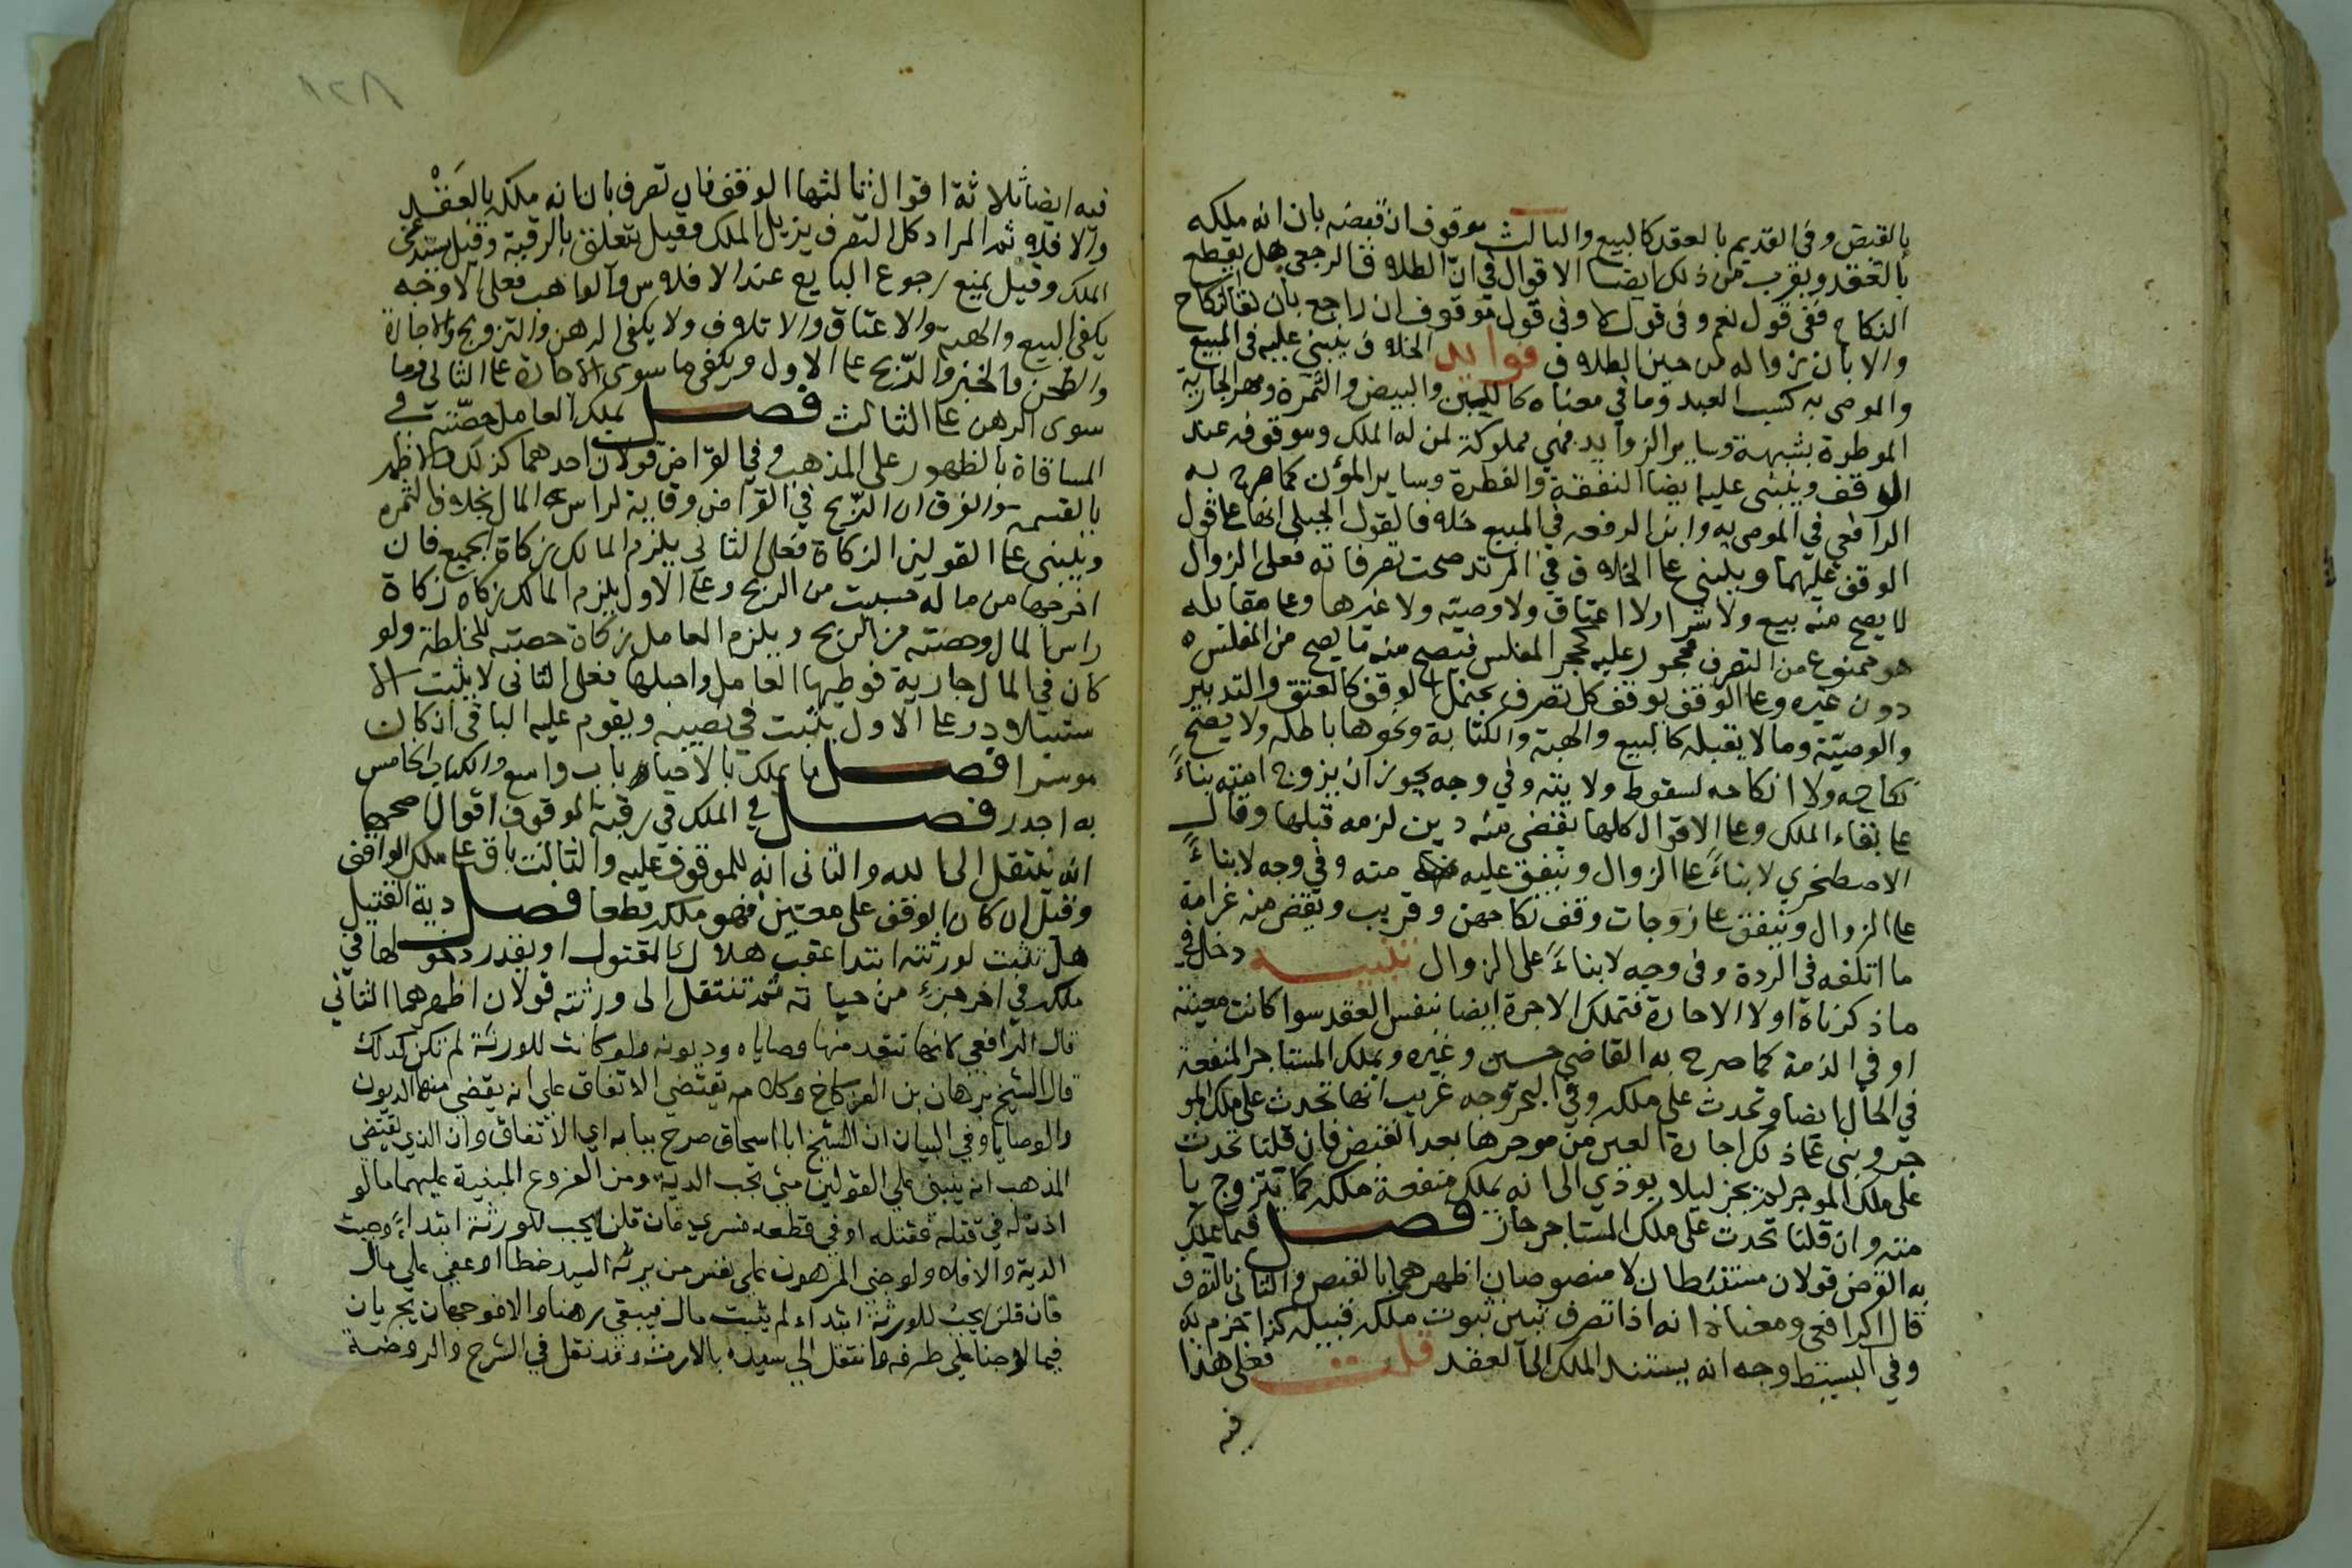 بالقبض وفي القديم بالعقد كالبيع والثالث موقوف ان قبضه بان انه ملكه
بالعقد ويقرب من ذلك ايضا الاقوال في ان الطلاق الرجعي هل يقطع
النكاح ففي قول نعم وفي قول لا وفي قول موقوف ان راجع بان بقا النكاح
والا بان زواله من حين الطلاق فوايد الخلاف ينبني عليه في المبيع
والموصى به كسب العبد وما في معناه كاللبن والبيض والثمرة ومهر الجارية
الموطوة بشبهة وساير الزوايد فهي مملوكة لمن له الملك وموقوفه عند
الوقف وينبني عليه ايضا النفقة والفطرة وساير المؤن كما صرح به
الرافعي في الموصى به وابن الرفعه في المبيع خلافا لقول الجيلي انها على قول
الوقف عليهما وينبني على الخلاف في المرتد صحت تصرفاته فعلى الزوال
لا يصح منه بيع ولا شرا ولا اعتاق ولا وصيته ولا غيرها وعلى مقابله
هو ممنوع من التصرف محجور عليه كحجر المفلس فيصح منه ما يصح من المفلس
دون غيره وعلى الوقف يوقف كل تصرف يحتمل الوقف كالعتق والتدبير
والوصية وما لا يقبله كالبيع والهبة والكتابة ونحوها باطله ولا يصح
نكاحه ولا انكاحه لسقوط ولايته وفي وجه يجوز ان يزوج امته بناءً
على بقاء الملك وعلى الاقوال كلها يقضى منه دين لزمه قبلها وقال
الاصطخري لا بناءً على الزوال وينفق عليه منه وفي وجه لا بناءً
على الزوال وينفق على زوجات وقف نكاحهن وقريب ويقضى منه غرامة
ما اتلفه في الردة وفي وجه لا بناءً على الزوال تنبيه دخل في
ما ذكرناه اولا الاجارة فتملك الاجرة ايضا بنفس العقد سوا كانت معينة
او في الذمة كما صرح به القاضي حسين وغيره ويملك المستاجر المنفعة
في الحال ايضا وتحدث على ملكه وفي البحر وجه غريب انها تحدث على ملك المو
جر وبنى على ذلك اجارة العين من موجرها بعد القبض فان قلنا تحدث
على ملك الموجر لم يجز ليلا يوذي الى انه يملك منفعة ملكه كما يتزوج با
منه وان قلنا تحدث على ملك المستاجر جاز فصل فيما يملك
به القرض قولان مستنبطان لا منصوصان اظهرهما بالقبض والثاني بالتصرف
قال الرافعي ومعناه انه اذا تصرف تبين ثبوت ملكه قبيله كذا جزم به
وفي البسيط وجه انه يستند الملك الى العقد قلت فعلى هذا
فيه
١٢٨
فيه ايضا ثلاثة اقوال ثالثها الوقف فان تصرف بان انه ملكه بالعقد
والا فلا ثم المراد كل التصرف يزيل الملك وقيل يتعلق بالرقبة وقيل يستدعي
الملك وقيل يمنع رجوع البايع عند الافلاس والواهب فعلى الاوجه
يكفي البيع والهبة والاعتاق والاتلاف ولا يكفي الرهن والتزويج والاجارة
والطحن والخبز والذبح على الاول ويكفي ما سوى الاجارة على الثاني وما
سوى الرهن على الثالث فصل يملك العامل حصته في
المساقاة بالظهور على المذهب وفي القراض قولان احدهما كذلك والاظهر
بالقسمة والفرق ان الربح في القراض وقاية لراس المال بخلاف الثمره
وينبني على القولين الزكاة فعلى الثاني يلزم المالك زكاة الجميع فان
اخرجها من ماله حسبت من الربح وعلى الاول يلزم المالك زكاه زكاة
راس المال وحصته من الربح ويلزم العامل زكاة حصته للخلطة ولو
كان في المال جارية فوطيها العامل واحبلها فعلى الثاني لا يثبت الا
ستيلاد وعلى الاول يثبت في نصيبه ويقوم عليه الباقي ان كان
موسرا فصل ما يملك بالاحياء باب واسع والكتاب الخامس
به اجدر فصل في الملك في رقبة الموقوف اقوال اصحها
انه ينتقل الى الله والثاني انه للموقوف عليه والثالث باق على ملك الواقف
وقيل ان كان الوقف على معين فهو ملكه قطعا فصل دية القتيل
هل تثبت لورثته ابتدا عقب هلاك المقتول او يقدر دخولها في
ملكه في اخر جزء من حياته ثم تنتقل الى ورثته قولان اظهرهما الثاني
قال الرافعي لانها تنفد منها وصاياه وديونه ولو كانت للورثة لم تكن كذلك
قال الشيخ برهان بن الفركاح وكلامه يقتضي الاتفاق على انه يقضى منها الديون
والوصايا وفي البيان ان الشيخ ابا اسحاق صرح ببابه اي الاتفاق وان الذي يقتضي
المذهب انه ينبني على القولين متى تجب الدية ومن الفروع المبنية عليهما ما لو
اذن له في قتله فقتله او في قطعه فسري فان قلنا يجب للورثة ابتداءً وجبت
الدية والا فلا ولو جنى المرهون على نفس من يرثه السيد خطا او عفى على مال
فان قلنا يجب للورثة ابتداء لم يثبت مال فيبقى رهنا والا فوجهان يجريان
فيما لو جنا على طرفه وانتقل الى سيده بالارث وقد نقل في الشرح والروضة